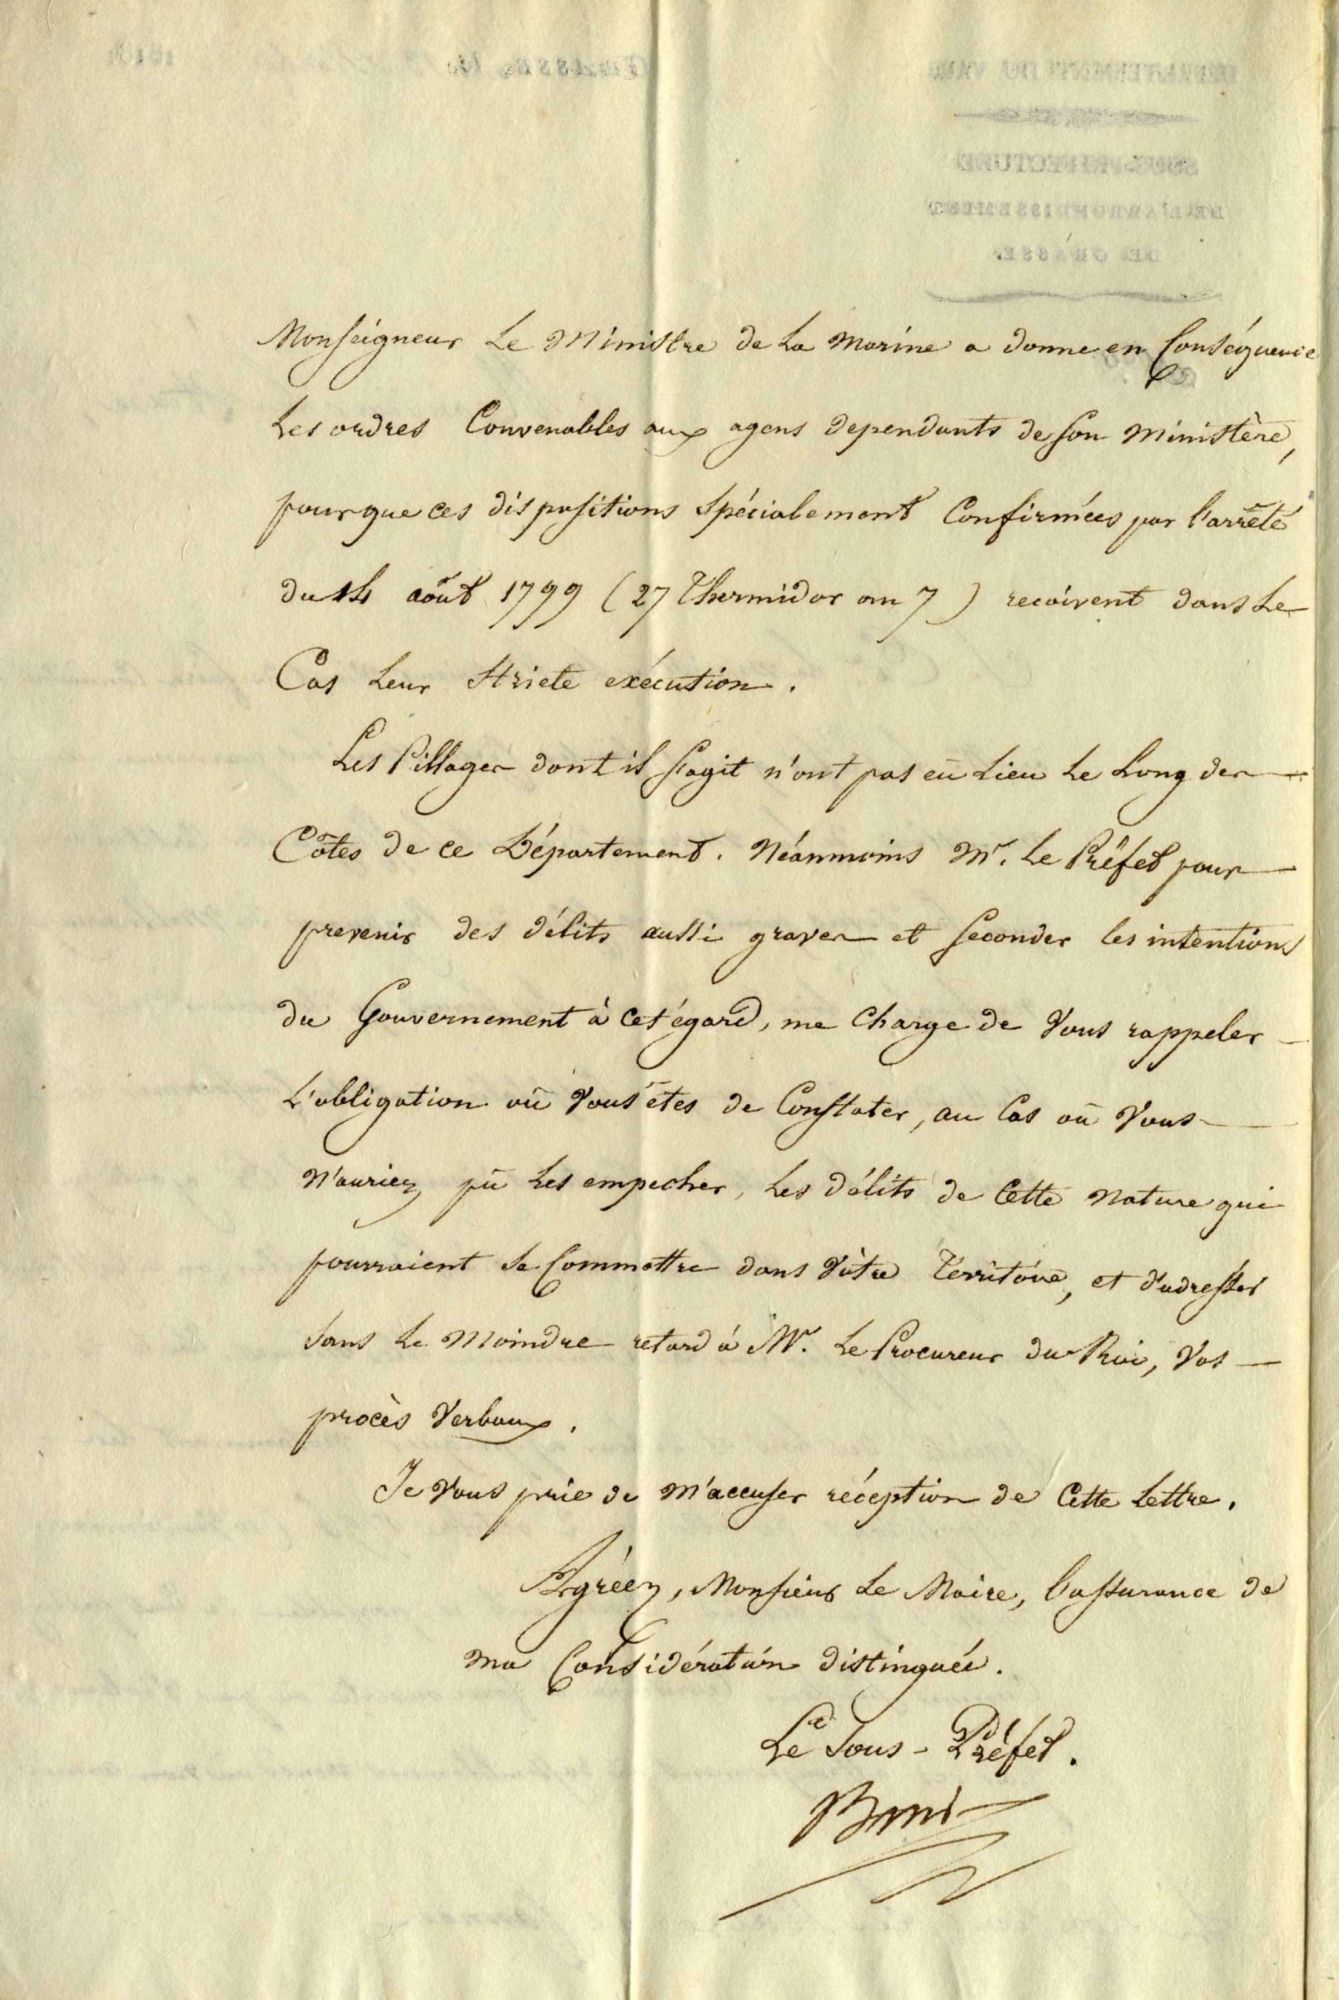 Monseigneur Le Ministre de La Marine a donne en Conséquence
Les ordres Convenables aux agens dependants de son Ministère,
pour que ces dispositions Spécialement Confirmées par l'arrêté
du 14 août 1799 (27 Thermidor an 7) recoivent dans Le
Cas Leur Stricte exécution.
Les Pillages dont il s'agit n'ont pas eû Lieu Le Long des
Côtes de ce Département. Néanmoins Mr. Le Préfet pour
prevenir des délits aussi graves et Seconder les intentions
du Gouvernement à cet égard, me Charge de Vous rappeler
L'obligation où Vous êtes de Constater, au Cas où Vous
N'auriez pû Les empecher, Les délits de Cette Nature qui
pourraient Se Commettre dans Vôtre Territoire, et d'adresser
Sans Le Moindre retard à Mr. Le Procureur du Roi, Vos
procès Verbaux.
Je Vous prie de M'accuser réception de Cette Lettre.
Agréez, Monsieur Le Maire, l'assurance de
Ma Considération distinguée.
Le Sous-Préfet.